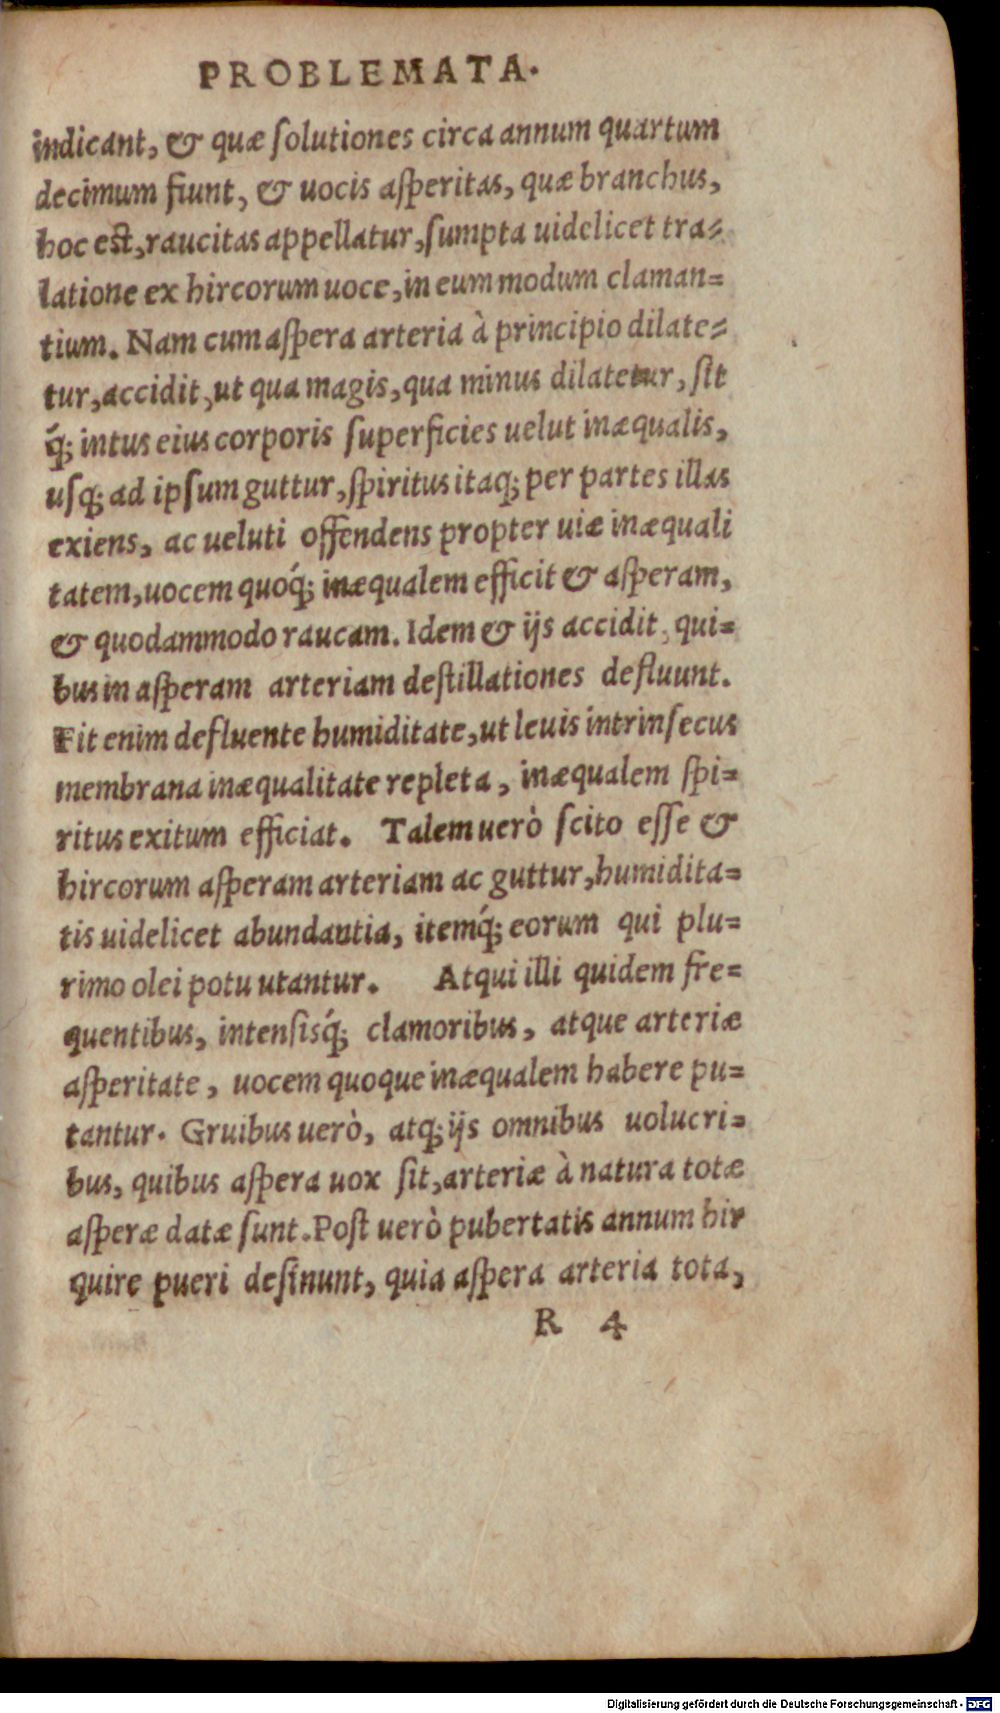 PROBLEMATA.
indicant, & quæ ſolutiones circa annum quartum
decimum fiunt, & uocis aſperitas, quæ branchus,
hoc eſt, raucitas appellatur, ſumpta uidelicet tra=
latione ex hircorum uoce, in eum modum claman=
tium. Nam cum aſpera arteria à principio dilate=
tur, accidit, ut qua magis, qua minus dilatetur, ſit
q́; intus eius corporis ſuperficies uelut inæqualis,
uſq; ad ipſum guttur, ſpiritus itaq; per partes illas
exiens, ac ueluti offendens propter uiæ inæquali
tatem, uocem quoq́; inæqualem efficit & aſperam,
& quodammodo raucam. Idem & ijs accidit, qui=
bus in aſperam arteriam deſtillationes defluunt.
Fit enim defluente humiditate, ut leuis intrinſecus
membrana inæqualitate repleta, inæqualem ſpi=
ritus exitum efficiat. Talem uerò ſcito eſſe &
hircorum aſperam arteriam ac guttur, humidita=
tis uidelicet abundantia, itemq́; eorum qui plu=
rimo olei potu utantur. Atqui illi quidem fre=
quentibus, intenſisq́; clamoribus, atque arteriæ
aſperitate, uocem quoque inæqualem habere pu=
tantur. Gruibus uerò, atq; ijs omnibus uolucri=
bus, quibus aſpera uox ſit, arteriæ à natura totæ
aſperæ datæ ſunt. Poſt uerò pubertatis annum hir
quire pueri deſinunt, quia aſpera arteria tota,
R 4
Digitalisierung gefördert durch die Deutsche Forschungsgemeinschaft - DFG